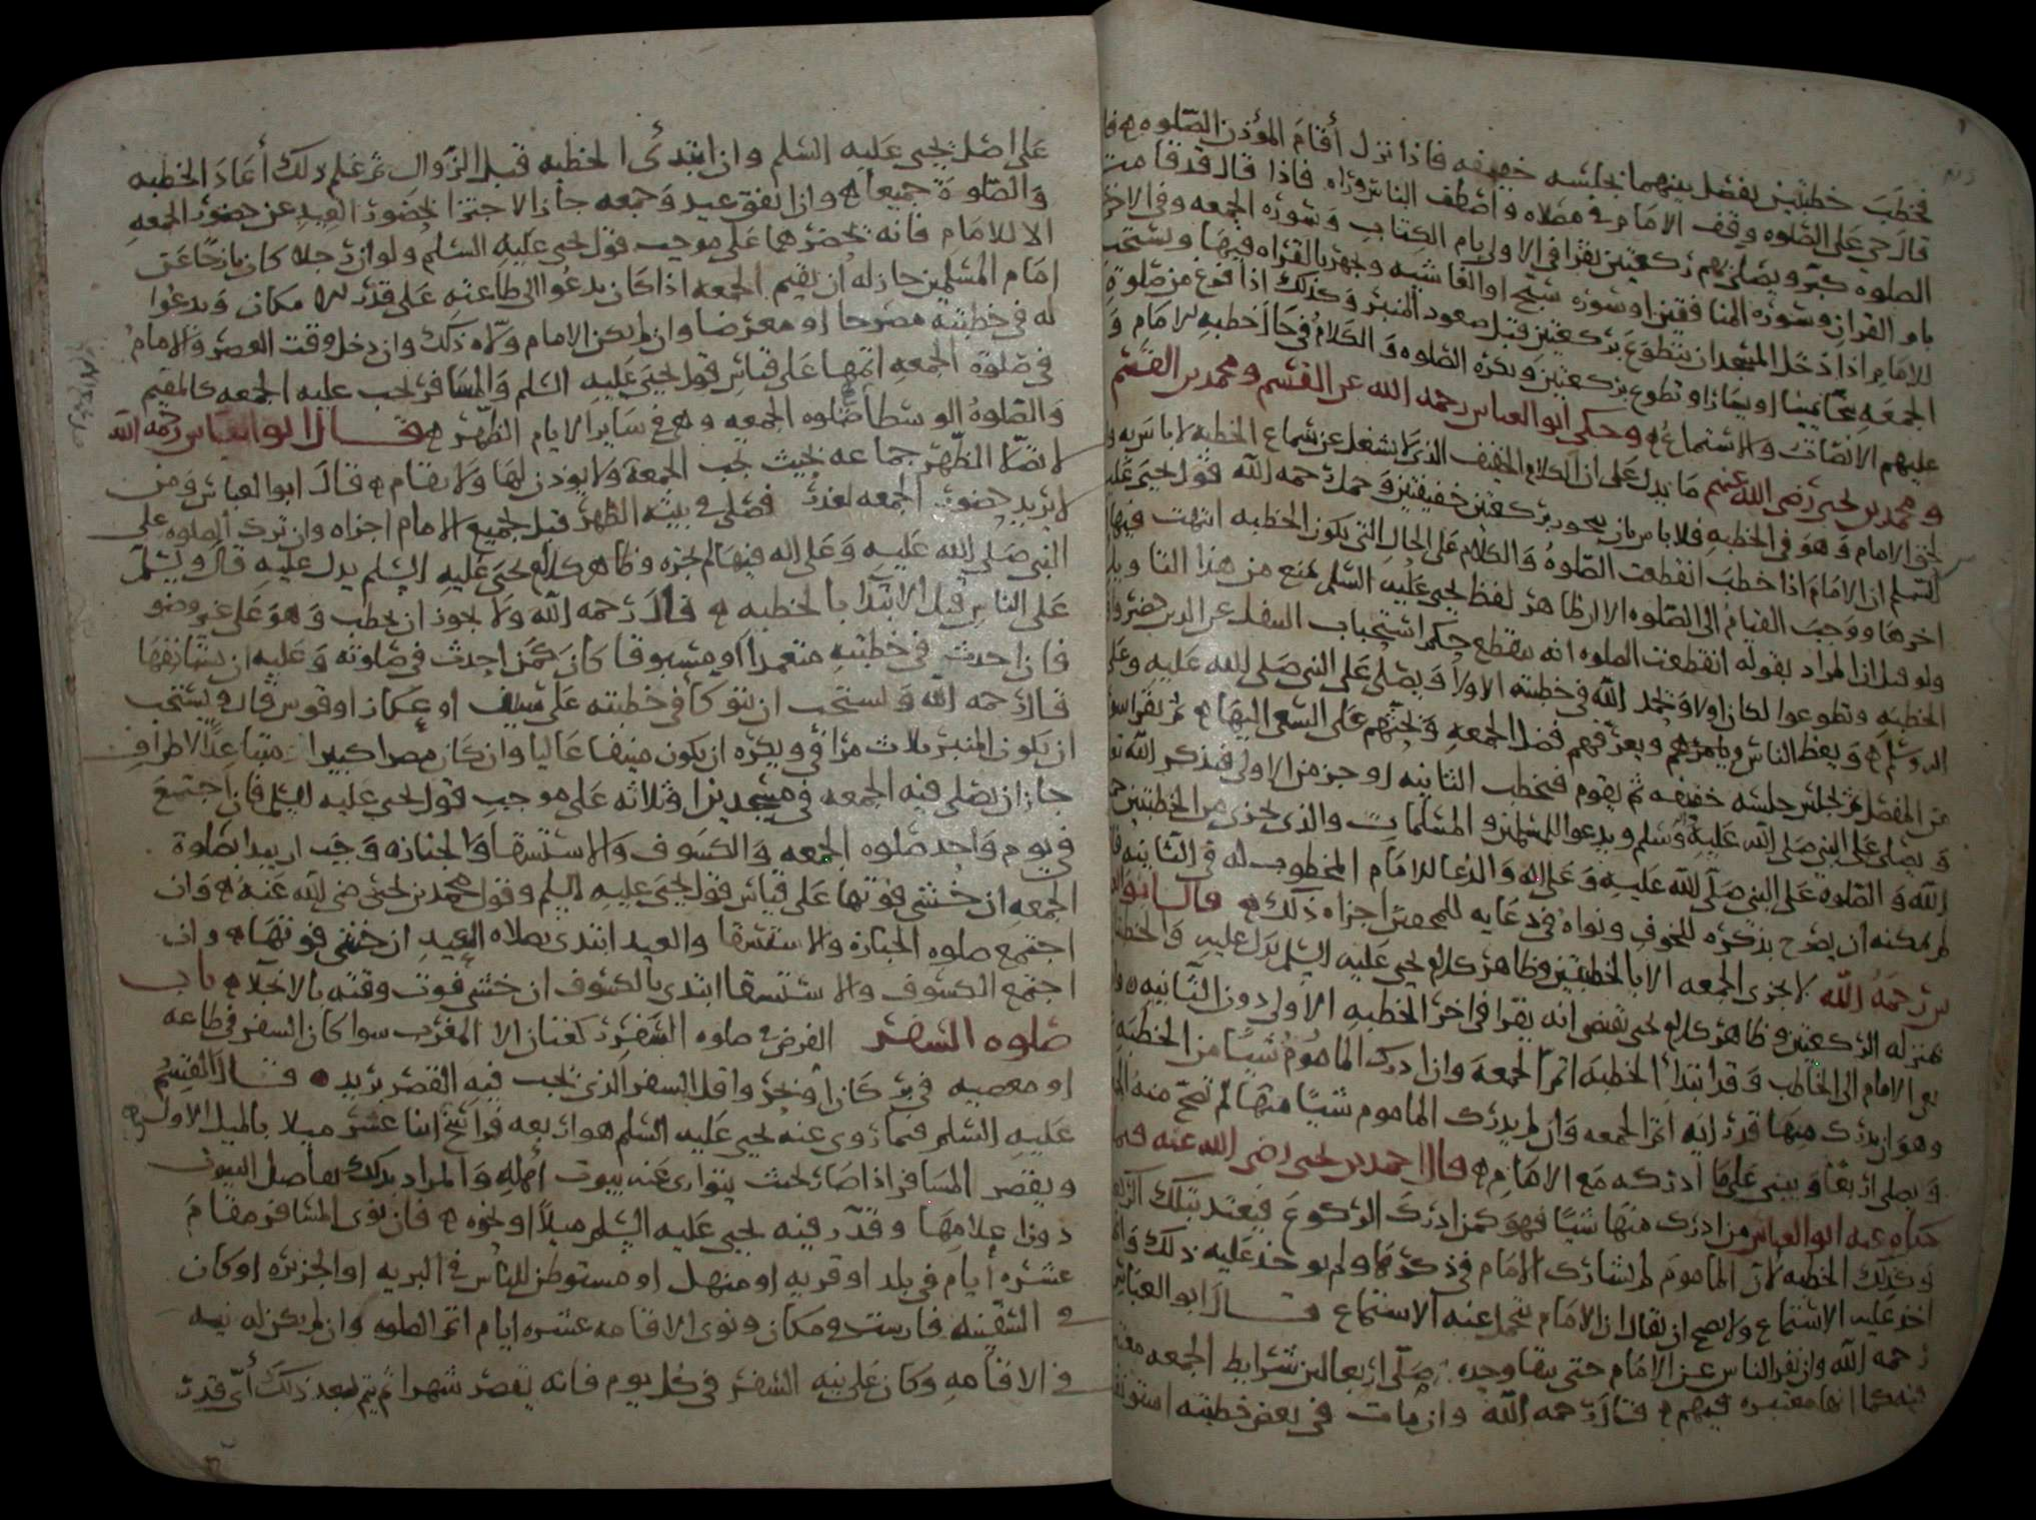 فخطب خطبتين يفصل بينهما بجلسه خفيفه فاذا نزل أقام المؤذن الصلوه فا
قال حي على الصلوه وقف الامام في مصلاه واصطف الناس وراه فاذا قال قد قامت
الصلوه كبر ويصلي بهم ركعتين يقرا في الاولى بام الكتاب وسوره الجمعه وفي الاخر
بام القران وسوره المنافقين او سوره سبح او الغاشيه ويجهر بالقراه فيهما ويستحب
للامام اذا دخل المسجد ان يتطوع بركعتين قبل صعود المنبر وكذلك اذا فرغ من صلوة
الجمعه نحا يمينا او يسارا وتطوع بركعتين ويكره الصلوه والكلام في حال خطبه الامام و
عليهم الانصات والاستماع وحكى ابو العباس رحمه الله عن القسم ومحمد بن القسم
ومحمد بن يحيى رضي الله عنهم ما يدل على ان الكلام الخفيف الذي لا يشغل عن سماع الخطبه لا باس به و
الامام وهو في الخطبه فلا باس بان يجود بركعتين خفيفتين وحمل رحمه الله قول يحيى عليه
السلم ان الامام اذا خطب انقطعت الصلوة والكلام على الحال التي يكون الخطبه انتهت فيها
اخرها ووجب القيام الى الصلوه الا ان ظاهر لفظ يحيى عليه السلم يمنع من هذا التاويل
ولو قيل ان المراد بقوله انقطعت الصلوه انه ينقطع حكم استحباب النفل عن الذين حضروا
الخطبه وتطوعوا لكان اولا ويحمد الله في خطبته الاولا ويصلي على النبي صلى الله عليه وعلى
اله وسلم ويعظ الناس ويامرهم ويعرفهم فضل الجمعه ويحثهم على السعي اليها ثم يقرا سو
من المفصل ثم يجلس جلسه خفيفه ثم يقوم فيخطب الثانيه اوجز من الاولى فيذكر الله تع
ويصلي على النبي صلى الله عليه وسلم ويدعوا للمسلمين والمسلمات والذي يجزى من الخطبتين
الله والصلوه على النبي صلى الله عليه وعلى اله والدعا للامام المخطوب له في الثانيه
لم يمكنه ان يصرح بذكره للخوف ونواه في دعايه للمحقين اجزاه ذلك قال ابو العبا
س رحمه الله لا تجزى الجمعه الا بالخطبتين وظاهر كلام يحيى عليه السلم يدل عليه والخطبه
بمنزله الركعتين وظاهر كلام يحيى يقتضي انه يقرا في اخر الخطبه الاولى دون الثانيه
الامام الى الخاطب وقد ابتدأ الخطبه اتم الجمعه وان ادرك الماموم شيا من الخطبه
وهو ان يدرك منها قدر ايه اتم الجمعه فان لم يدرك الماموم شيا منها لم تصح منه
ويصلي اربعا ويبني على ما ادركه مع الامام قال احمد بن يحيى رضي الله عنه فيما
حكاه عنه ابو العباس من ادرك منها شيا فهو كمن ادرك الركوع فيعتد بتلك
وكذلك الخطبه لان الماموم لم يشارك الامام في ذكرها ولم يوخذ عليه ذلك و
اخذ عليه الاستماع ولا يصح ان يقال ان الامام يتحمل عنه الاستماع قال ابو العباس
رحمه الله وان نفر الناس عن الامام حتى بقا وحده صلى اربعا لان شرايط الجمعه
فيه كما انها معتبره فيهم قال رحمه الله وان مات في بعض خطبته
على اصل يحيى عليه السلم وان ابتدى الخطبه قبل الزوال ثم علم ذلك أعاد الخطبه
والصلوة جميعا وان اتفق عيد وجمعه جاز الاجتزا بحضور العيد عن حضور الجمعه
الا للامام فانه يحضرهما على موجب قول يحيى عليه السلم ولو ان رجلا كان نازحا عن
امام المسلمين جاز له أن يقيم الجمعه اذا كان يدعوا الى طاعته على قدر الامكان ويدعوا
له في خطبته مصرحا او معرضا وان لم يكن الامام ولاه ذلك وان دخل وقت العصر والامام
في صلوة الجمعه اتمها على قياس قول يحيى عليه السلم والمسافر تجب عليه الجمعه كالمقيم
والصلوة الوسطا صلوه الجمعه وهي في ساير الايام الظهر قال ابو العباس رحمه الله
لا تصلا الظهر جماعه بحيث تجب الجمعة ولا يوذن لها ولا يقام قال ابو العباس ومن
لا يريد حضور الجمعه لعذر فصلى في بيته الظهر قبل تجميع الامام اجزاه وان ترك الصلوه على
النبي صلى الله عليه وعلى اله فيها لم يجزه وظاهر كلام يحيى عليه السلم يدل عليه قال ويسلم
على الناس قبل الابتدا بالخطبه قال رحمه الله ولا يجوز ان يخطب وهو على غير وضو
فان احدث في خطبته متعمدا او مسبوقا كان كمن احدث في صلوته وعليه ان يستانفها
قال رحمه الله ويستحب ان يتوكأ في خطبته على سيف او عكاز او قوس قال ويستحب
ان يكون المنبر ثلاث مراقي ويكره ان يكون منيفا عاليا وان كان مصرا كبيرا متباعدا الاطراف
جاز ان يصلي فيه الجمعه في مسجدين او ثلاثه على موجب قول يحيى عليه السلم فان اجتمع
في يوم واحد صلوه الجمعه والكسوف والاستسقا والجنازه وجب ان يبدا بصلوة
الجمعه ان خشي فوتها على قياس قول يحيى عليه السلم وقول محمد بن يحيى رضي الله عنه وان
اجتمع صلوه الجنازة والاستسقا والعيد ابتدى بصلاه العيد ان خشي فوتها وان
اجتمع الكسوف والاستسقا ابتدى بالكسوف ان خشي فوت وقته بالانجلا باب
صلوه السفر الفرض في صلوه السفر ركعتان الا المغرب سوا كان السفر في طاعه
او معصيه في بر كان أو بحر واقل السفر الذي تجب فيه القصر بريد قال القسم
عليه السلم فيما روى عنه يحيى عليه السلم هو اربعه فراسخ اثنا عشر ميلا بالميل الاول
ويقصر المسافر اذا صار بحيث يتوارى عنه بيوت أهله والمراد بذلك اصل البيوت
دون اعلامها وقدر فيه يحيى عليه السلم ميلا او نحوه فان نوى المسافر مقام
عشره أيام في بلد او قريه او منهل او مستوطن للناس في البريه او الجزيره او كان
في السفينه فارست ومكان ونوى الاقامه عشره ايام اتم الصلوه وان لم يكن له نيه
في الاقامه وكان على نيه السفر في كل يوم فانه يقصر شهرا ثم يتم بعد ذلك أي قدر